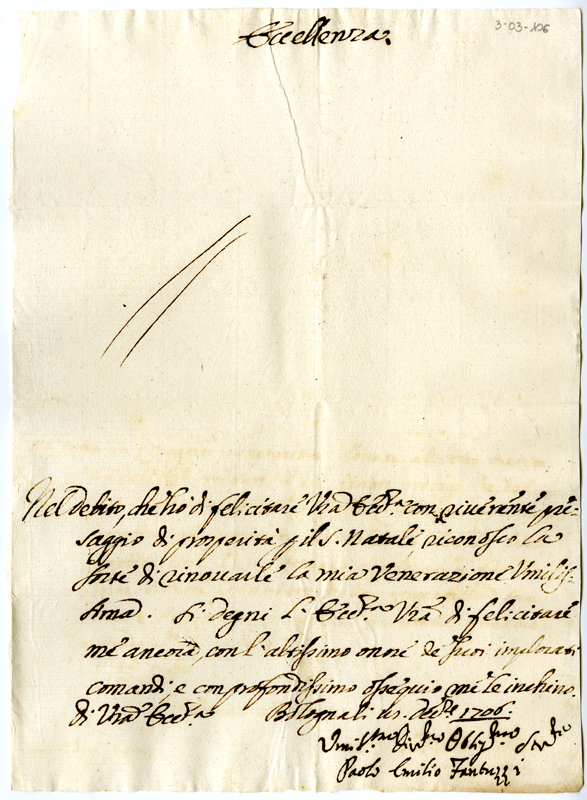 3-03-106
Eccellenza.
Nel debito, che hò di felicitare Vrã Ecc.ª con riuerente pre=
saggio di prosperità p il S. Natale, riconosco la
sorte di rinouarle la mia Venerazione Vmiliss-
sima. Si degni l'Ecc.ª Vrã di felicitare
me ancora, con l'altissimo onore de suoi implorati
comandi e con profondissimo ossequio me le inchino
di Vrã Ecc.ª Bologna li Xbre 1706.
Vmil.mo Diu.mo Oblig.mo Ser.re
Paolo Emilio Fantuzzi